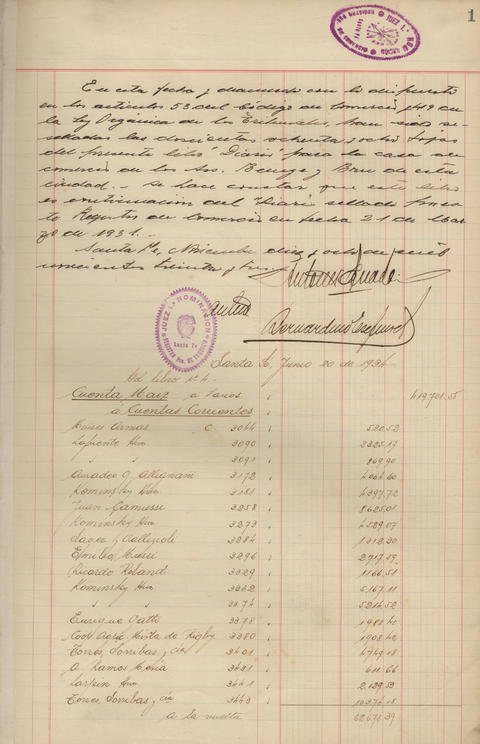 1
JUEZ 1ª NOMINACION
En esta fecha y de acuerdo con lo dispuesto
en los artículos 53 del Código de Comercio y 49 de
la Ley Orgánica de los Tribunales, han sido se-
lladas las doscientas ochenta y ocho fojas
del presente libro "Diario" para la casa de
comercio de los Sres. y de esta
ciudad.- Se hace constar que este libro
es continuación del Diario sellado por es-
te Registro de Comercio en fecha 21 de Mar-
zo de 1931.-
Santa Fe, Noviembre diez y ocho de mil
novecientos treinta y tres
JUEZ 1ª NOMINACION
Santa Fe
Santa Fe, Junio 20 de 1934
Del libro Nº 4.
Cuenta Maiz a Varios 419.701.55
á Cuentas Corrientes
Moises Armas C. 3044 520.53
Lafuente Hno 3090 2325.19
" " 3091 169.90
Amadeo G. 3172 4064.60
Kominsky Hno 3181 4397.72
Juan 3258 8625.01
Kominsky Hno 3273 4529.07
3284 1312.30
Emilio Mussi 3296 2717.59
Ricardo Roland 3329 1166.51
Kominsky Hno 3362 5167.11
" " 3374 5214.52
Enrique Gatti 3378 1982.40
Coop. Agric. Mixta de Rigby 3380 1908.42
Torres, Sorribas y cia 3401 4749.18
A. Ramos Mejia 3431 611.66
Larpin Hno 3441 2139.59
Torres, Sorribas y cia 3443 10374.18
a la vuelta 62671.39